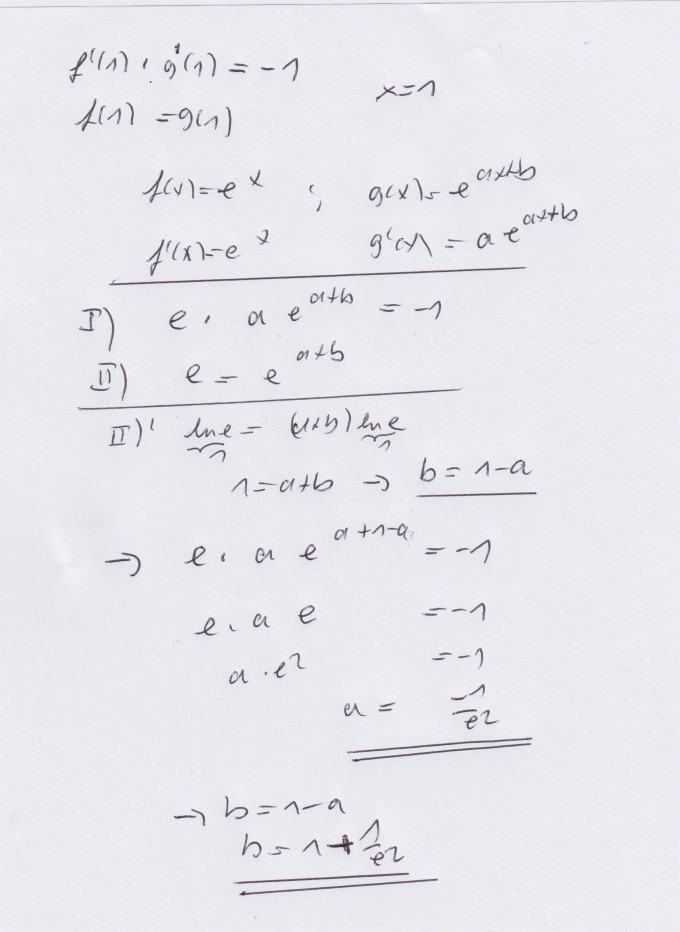 f'(1) · g'(1) = -1
x=1
f(1) = g(1)
f(x)=e^x ; g(x)= e^{ax+b}
f'(x)=e^x g'(x) = a e^{ax+b}
I) e · a e^{a+b} = -1
II) e = e^{a+b}
II)' ln e = (a+b) ln e
1 1
1=a+b → b = 1-a
→ e · a e^{a+1-a} = -1
e · a e = -1
a · e² = -1
a = -1/e²
→ b = 1-a
b = 1 + 1/e²